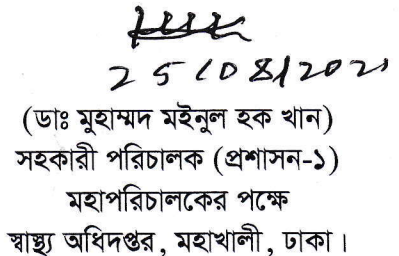 25/08/2021
(ডাঃ মুহাম্মদ মইনুল হক খান)
সহকারী পরিচালক (প্রশাসন-১)
মহাপরিচালকের পক্ষে
স্বাস্থ্য অধিদপ্তর, মহাখালী, ঢাকা।